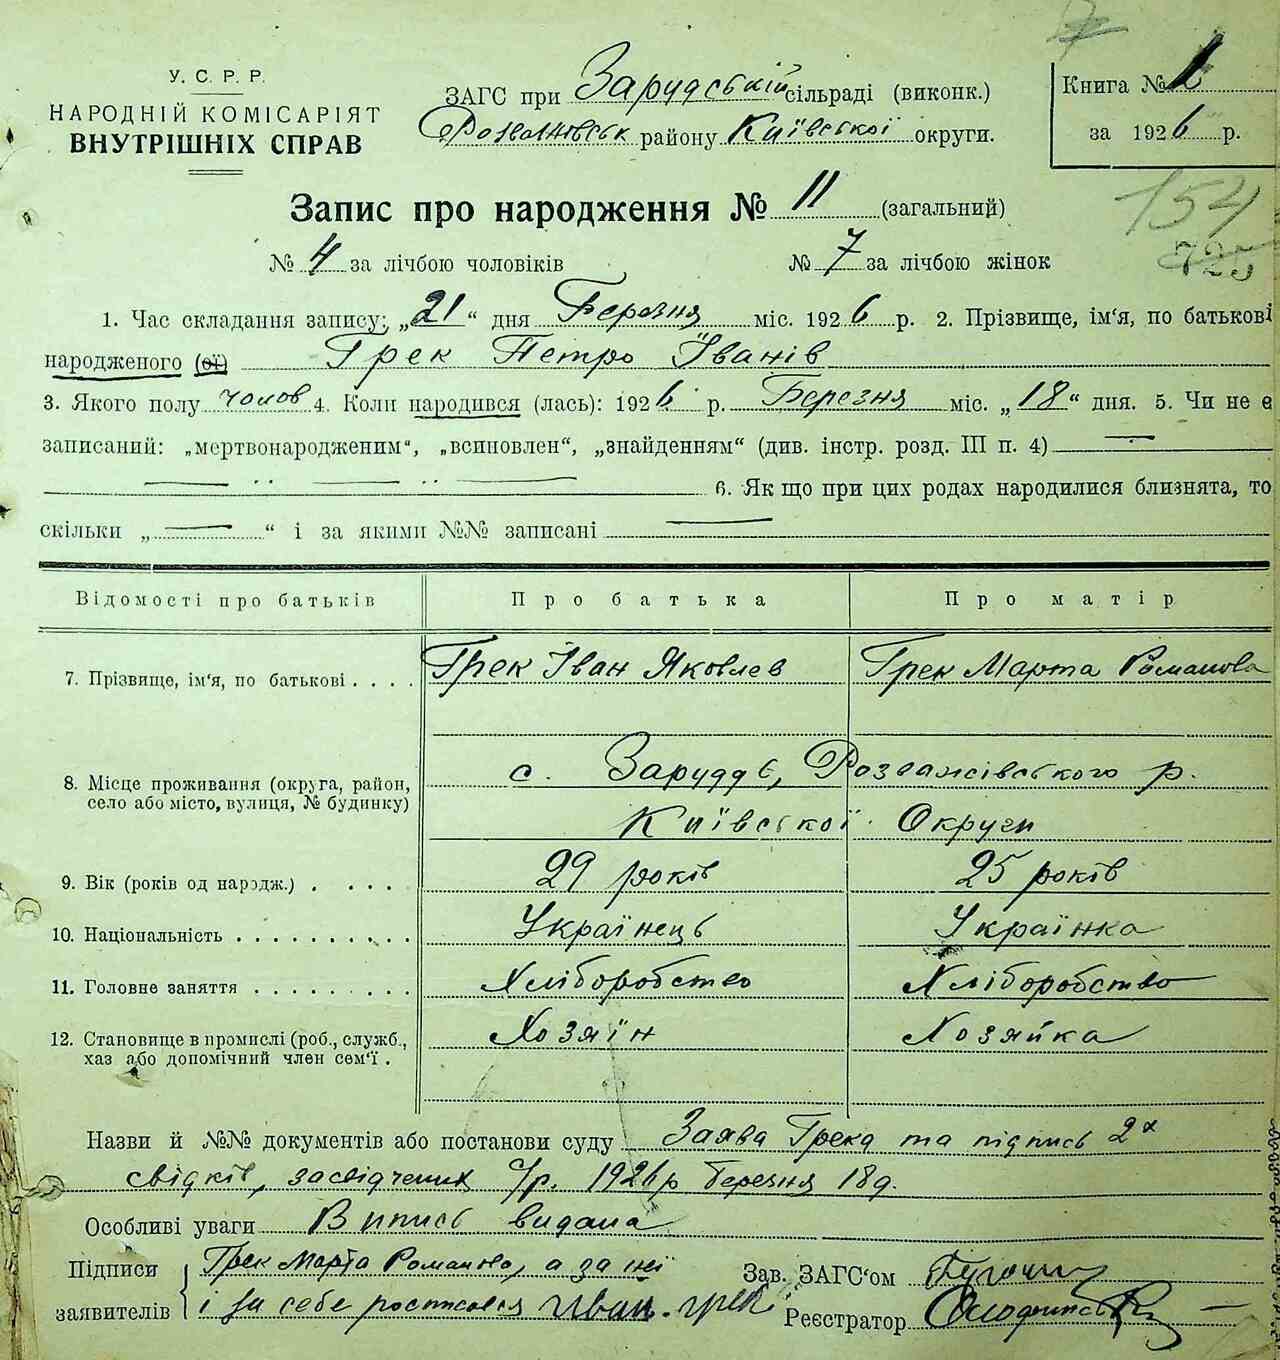 У. С. Р. Р.
НАРОДНІЙ КОМІСАРІЯТ
ВНУТРІШНІХ СПРАВ
ЗАГС при Зарудській сільраді (виконк.)
Розважівськ району Київської округи.
Книга № 1
за 1926 р.
Запис про народження № 11 (загальний)
154
725
№ 4 за лічбою чоловіків № 7 за лічбою жінок
1. Час складання запису: „21“ дня Березня міс. 1926 р. 2. Прізвище, ім‘я, по батькові
народженого (ої) Грек Петро Іванів
3. Якого полу чолов 4. Коли народився (лась): 1926 р. Березня міс. „18“ дня. 5. Чи не є
записаний: „мертвонародженим“, „всиновлен“, „знайденням“ (див. інстр. розд. III п. 4) —
— ·· — ·· — 6. Як що при цих родах народилися близнята, то
скільки „—“ і за якими №№ записані —
Відомості про батьків Про батька Про матір
7. Прізвище, ім‘я, по батькові . . . . Грек Іван Яковлев Грек Марта Романова
8. Місце проживання (округа, район,
село або місто, вулиця, № будинку)
с. Заруддє, Розважівського р.
Київської Округи
9. Вік (років од народж.) . . . . . 29 років 25 років
10. Національність . . . . . . . . . . Українець Українка
11. Головне заняття . . . . . . . . . Хліборобство Хліборобство
12. Становище в промислі (роб., служб.,
хаз або допомічний член сем‘ї .
Хозяїн Хозяйка
Назви й №№ документів або постанови суду Заява Грека та підпись 2х
свідків, засвідчених с/р. 1926р березня 18д.
Особливі уваги Випись видана
Підписи
заявителів
Грек Марта Романова, а за неї
і за себе росписався Иван Грек
Зав. ЗАГС‘ом
Реєстратор